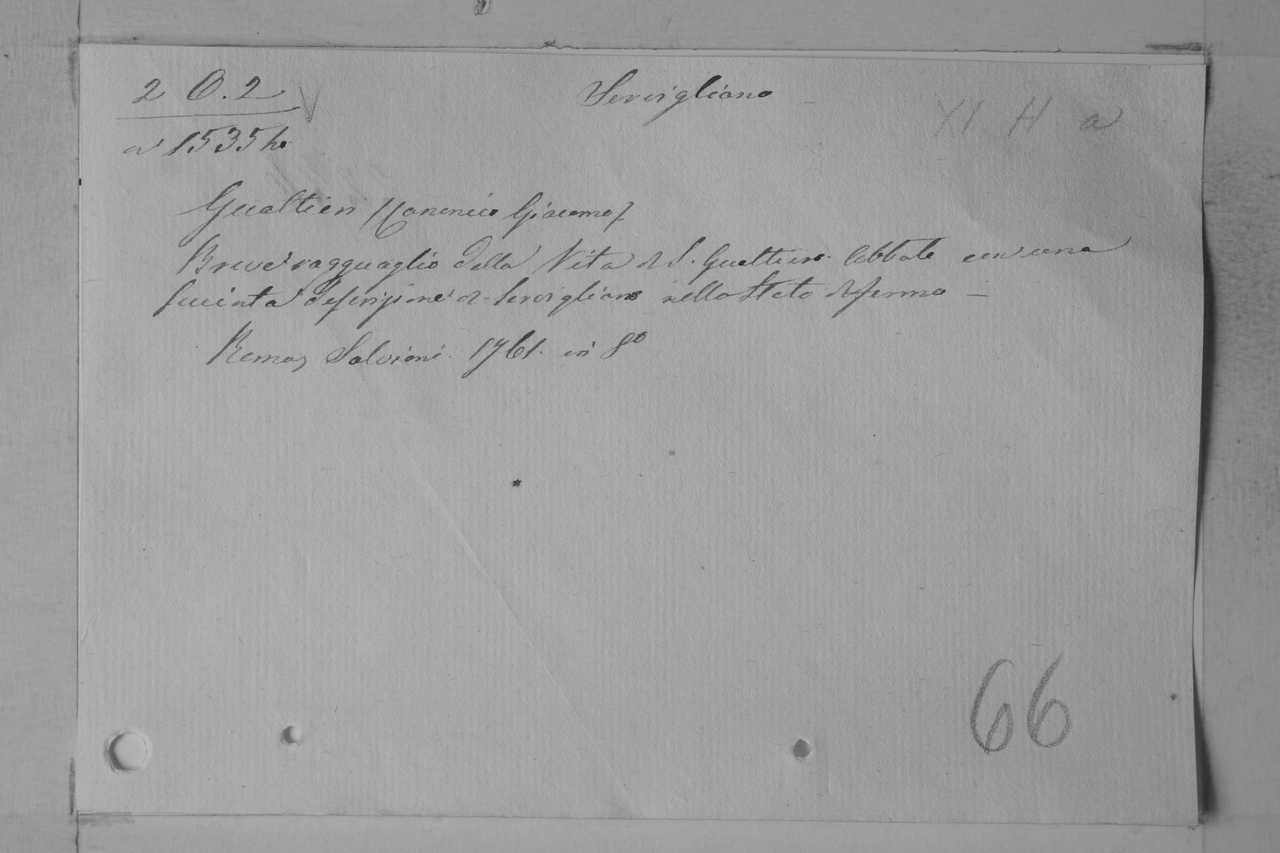 2 O. 2
Servigliano
XI H a
a 1535 ho
Gualtieri (Canonico Giacomo)
Breve ragguaglio della Vita di S. Gualtiero Abbate con una
succinta descrizione di Servigliano nello Stato di fermo —
Roma, Salvioni. 1761. in 8º
66